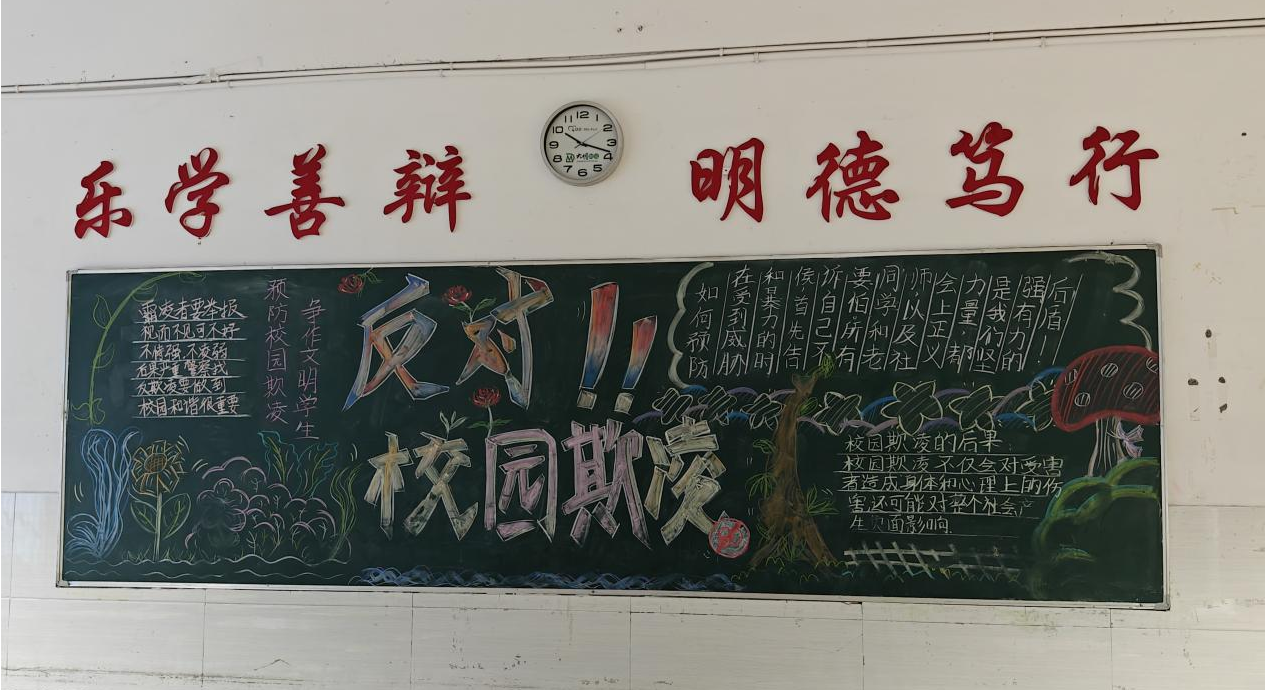 乐学善辩
明德笃行
12 1 2 3 4 5 6 7 8 9 10 11
霸凌者要举报
视而不见可不好
不倚强 不凌弱
后果严重 警察找
反欺凌要做到
校园和谐很重要
预防校园欺凌
争作文明学生
反对!!
校园欺凌
如何预防
在受到威胁
和暴力的时
侯,首先告
诉自己不
要怕,所有
同学和老
师,以及社
会上正义
力量,都
是我们坚
强有力的
后盾!
校园欺凌的后果:
校园欺凌不仅会对受害
者造成身体和心理上的伤
害,还可能对整个社会产
生负面影响.